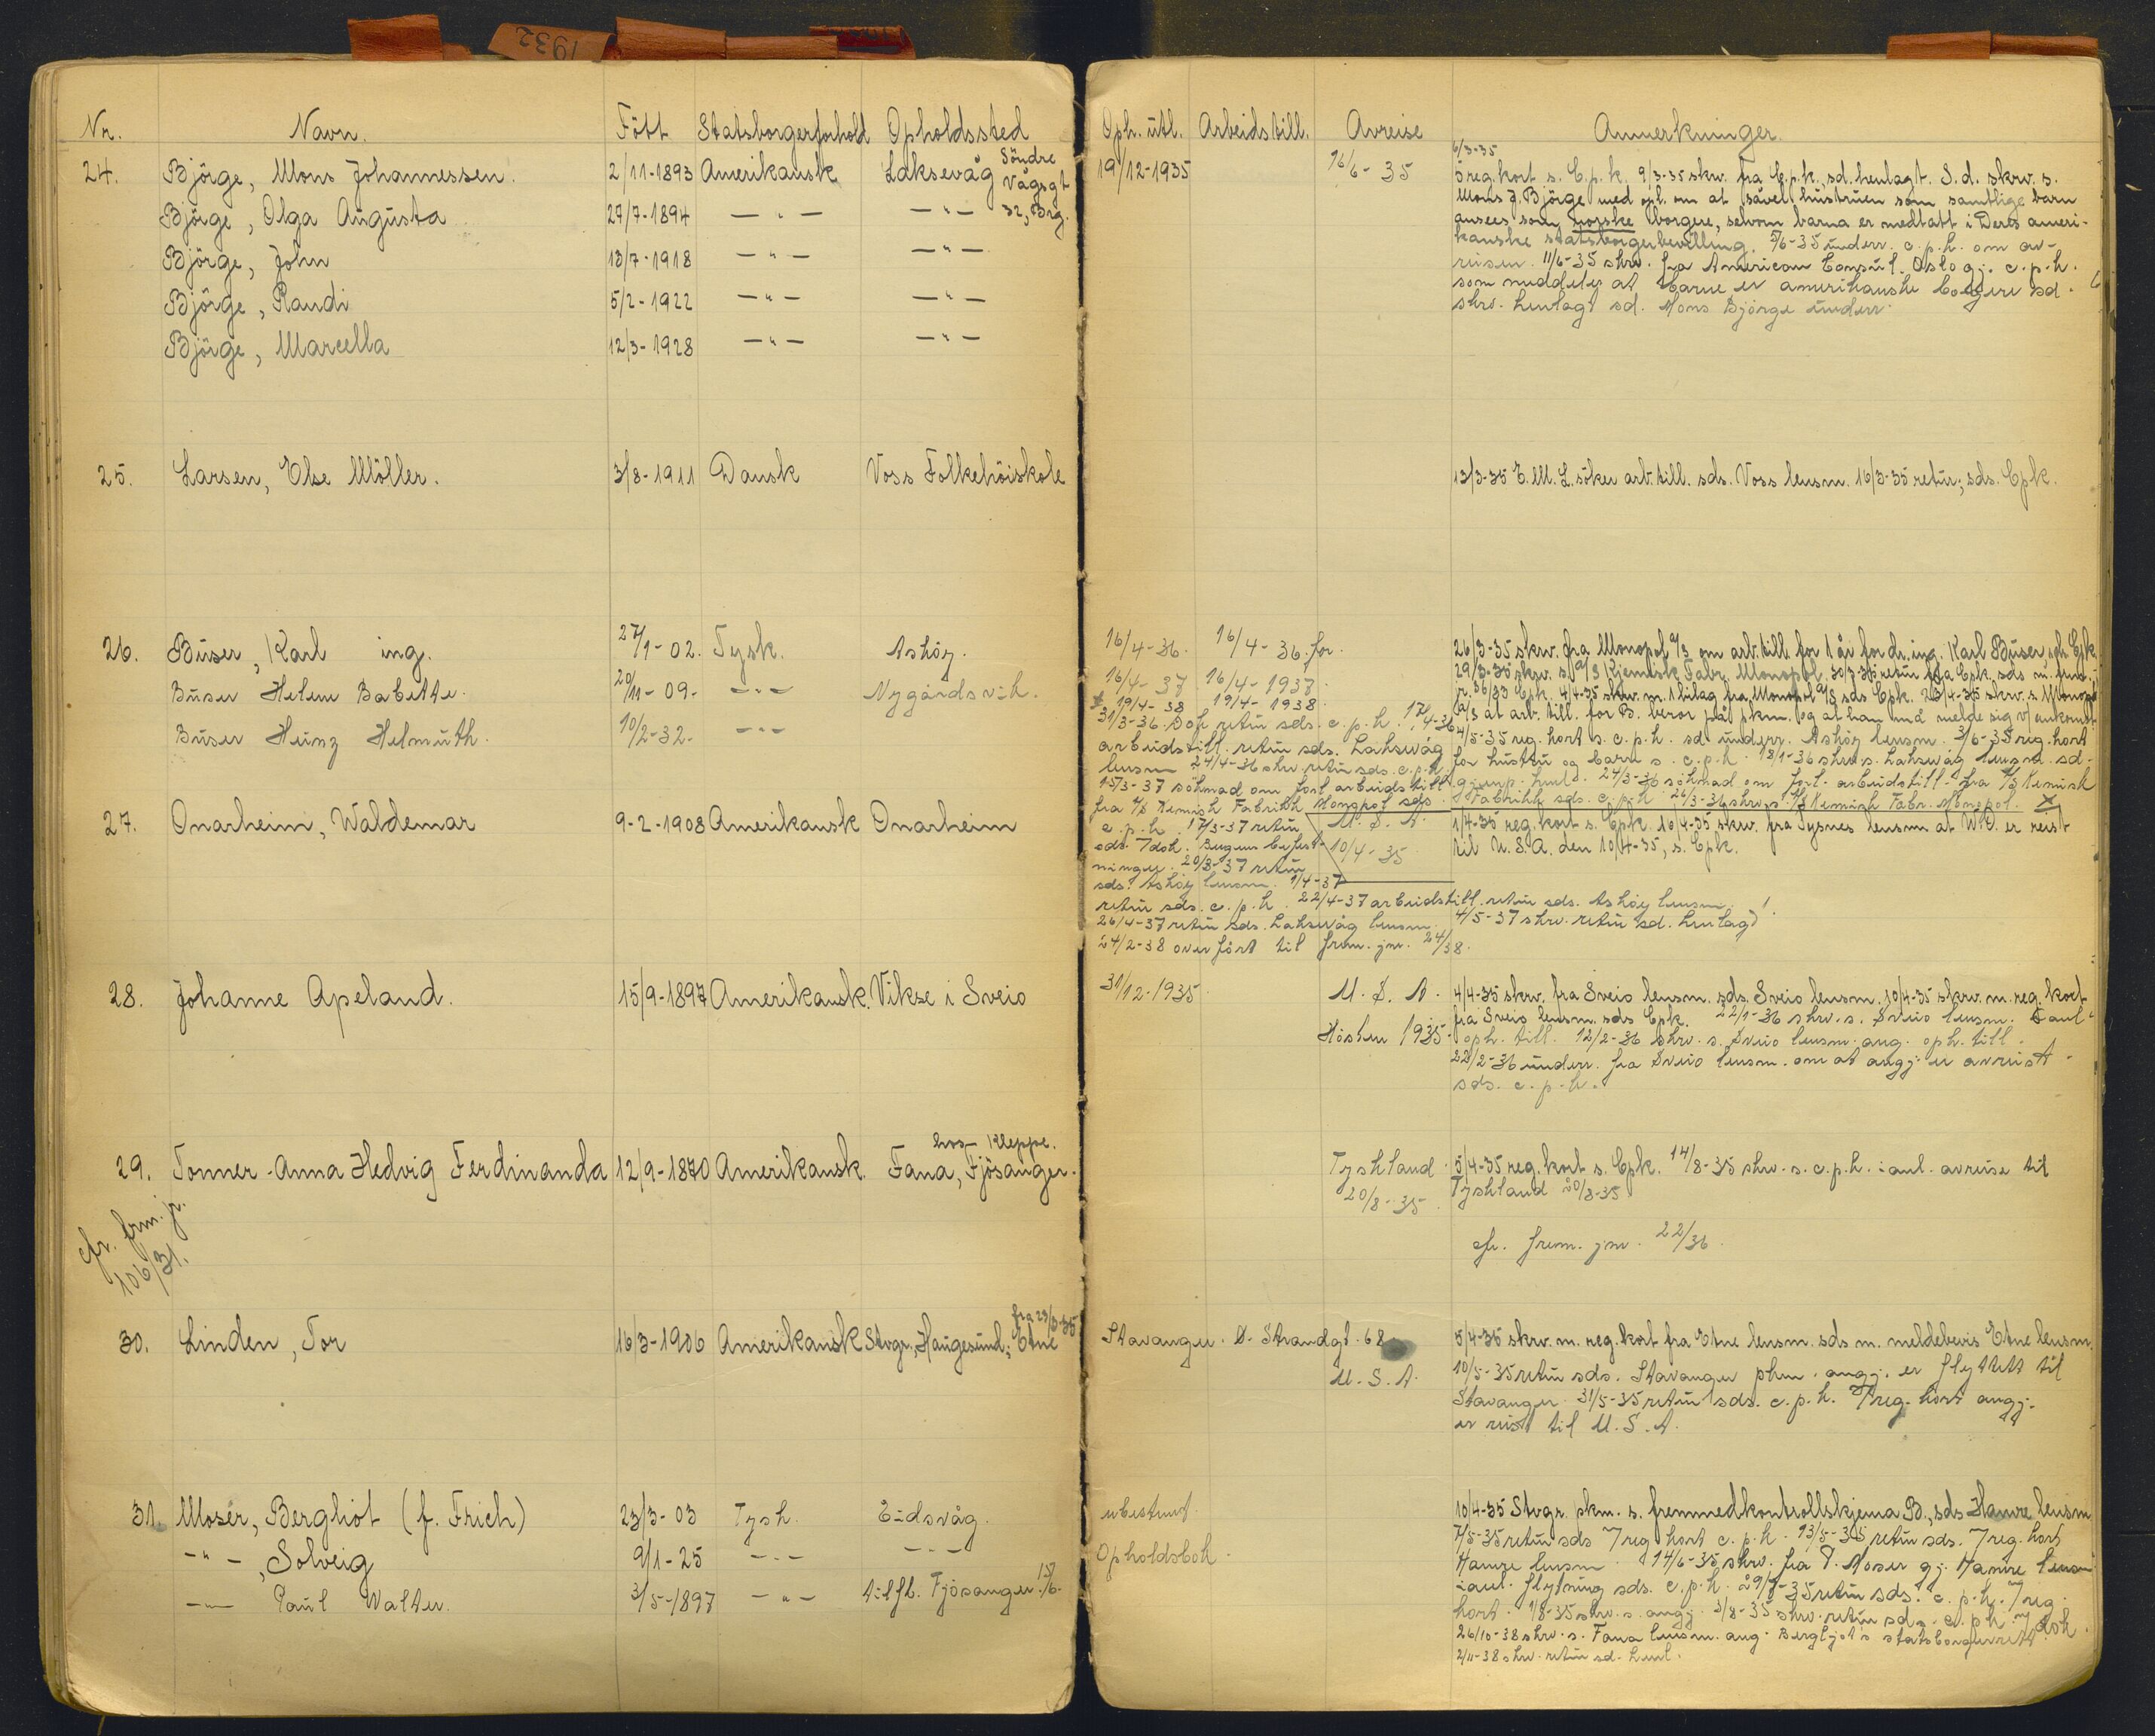 1932
Nr. Navn. Fött Statsborgerforhold Opholdssted
24. Björge, Mons Johannessen. 2/11-1893 Amerikansk Laksevåg Söndre Vågsgt 32, Brg.
Björge, Olga Augusta 27/7-1894 — " — — " —
Björge, John 13/7-1918 — " — — " —
Björge, Randi 5/2-1922 — " — — " —
Björge, Marcella 12/3-1928 — " — — " —
25. Larsen, Else Möller. 3/8-1911 Dansk Voss Folkehöiskole
26. Büser, Karl ing. 27/1-02. Tysk. Askøy.
Büser Helene Babette. 20/11-09- — " — Nygårdsvik.
Büser Heinz Helmuth. 10/2-32- — " —
27. Onarheim, Waldemar 9-2-1908 Amerikansk Onarheim
28. Johanne Apeland. 15/9-1897 Amerikansk. Vikse i Sveio
29. Tonner-Anna Hedvig Ferdinanda 12/9-1870 Amerikansk. Fana, Fjösanger.
hos Kleppe.
cfr. frm. jr.
106/31.
30. Linden, Tor 16/3-1906 Amerikansk Stvgr., Haugesund; Etne
31. Moser, Bergliot (f. Frich) 23/3-03 Tysk. Eidsvåg.
— " —, Solveig 9/1-25 — " — — " —
— " — Paul Walter. 3/5-1897 — " — tilfl. Fjösanger 15/6.
Oph. utl. Arbeidstill. Avreise Anmerkninger.
19/12-1935 16/6-35 6/3-35
5 reg.kort s. C.p.k. 9/3-35 skrv. fra C.p.k., sd. henlagt. S.d. skrv. s.
Mons J. Björge med opl. om at såvel hustruen som samtlige barn
ansees som norske borgere, selvom barna er medtatt i Deres ameri-
kanske statsborgerbevilling. 5/6-35 underr. c.p.k. om av-
reisen. 11/6-35 skrv. fra American Consul. Oslo gj. c.p.k.
som meddeler at barne er amerikanske borgere sd.
skrv. henlagt sd. Mons Björge underr.
13/3-35 E.M.L. söker arb.till. sds. Voss lensm. 16/3-35 retur; sds. Cpk.
16/4-36. 16/4-36. for.
16/4-37 16/4-1937.
19/4-38 19/4-1938.
26/3-35 skrv. fra Monopol A/S om arb.till. for 1 år for dr.ing. Karl Büser
29/3-35 skrv. s. A/S Kjemisk Fabr. Monopol. 30/3-35 retur fra Cpk. sds m.
4/4-35 skrv. m. 1 bilag fra Monopol A/S sds Cpk. 23/4-35 skrv. s. Monopol
A/S at arb. till. for B. beror på pkm. og at han må melde sig v/ ankomst.
4/5-35 reg. kort s. c.p.k. sd underr. Askøy lensm. 3/6-35 reg. kort
for hustru og barn s. c.p.k. 18/1-36 skrv. s. Laksevåg lensm. sd.
24/3-36 söknad om forl. arbeidstill. fra A/S Kemisk
Fabrikk sds. c.p.k. 26/3-36 skrv. s. A/S Kemisk Fabr. Monopol. X
31/3-36 Dok retur sds. c.p.k. 17/4-36
arbeidstill. retur sds. Laksevåg
lensm 24/4-36 skrv. retur sds. c.p.k.
15/3-37 söknad om forl. arbeidstill.
fra A/S Kemisk Fabrikk Monopol sds.
c.p.k. 17/3-37 retur
sds. 7 dok. Bergens befest-
ninger. 20/3-37 retur
sds. Askøy lensm. 1/4-37
retur sds. c.p.k. 22/4-37 arbeidstill. retur sds. Askøy lensm.
26/4-37 retur sds. Laksevåg lensm. 4/5-37 skrv. retur sd. henlagt.
24/2-38 overført til frem. jnr. 24/38.
U.S.A.
10/4-35
1/4-35 reg. kort s. Cpk. 16/4-35 skrv. fra Tysnes lensm. at W.O. er reist
til U.S.A. den 10/4-35, s. Cpk.
31/12-1935 U.S.A.
Hösten 1935.
4/4-35 skrv. fra Sveio lensm. sds. Sveio lensm. 10/4-35 skrv. m. reg. kort
fra Sveio lensm. sds Cpk. 22/1-36 skrv. s. Sveio lensm.
oph. till. 12/2-36 skrv. s. Sveio lensm. ang. oph. till.
22/2-36 underr. fra Sveio lensm. om at angj. er avreist
sds. c.p.k.
Tyskland
20/8-35
5/4-35 reg. kort s. Cpk. 14/8-35 skrv. s. c.p.k. i anl. avreise til
Tyskland 20/8-35
cfr. frem. jnr. 22/36.
fra 23/3-35
Stavanger. Strandgt. 68
U.S.A.
5/4-35 skrv. m. reg. kort fra Etne lensm. sds m. meldebevis Etne lensm.
10/5-35 retur sds. Stavanger pkm. angj. er flyttet til
Stavanger 31/5-35 retur sds. c.p.k. 7 reg. kort angj.
er reist til U.S.A.
ubestemt
Opholdsbok.
10/4-35 Stvgr. pkm. s. fremmedkontrollskjema B., sds Hamre lensm
7/5-35 retur sds 7 reg kort c.p.k. 13/5-35 retur sds. 7 reg. kort
Hamre lensm. 14/6-35 skrv. fra P. Moser gj. Hamre lensm
i anl. flytning sds. c.p.k. 29/7-35 retur sds. c.p.k. 7 reg.
kort. 1/8-35 skrv. s. angj. 3/8-35 skrv. retur sds. c.p.k. 7 dok.
26/10-38 skrv. s. Fana lensm. ang. Bergljot's statsborgerrett.
2/11-38 skrv. retur sd. henl.